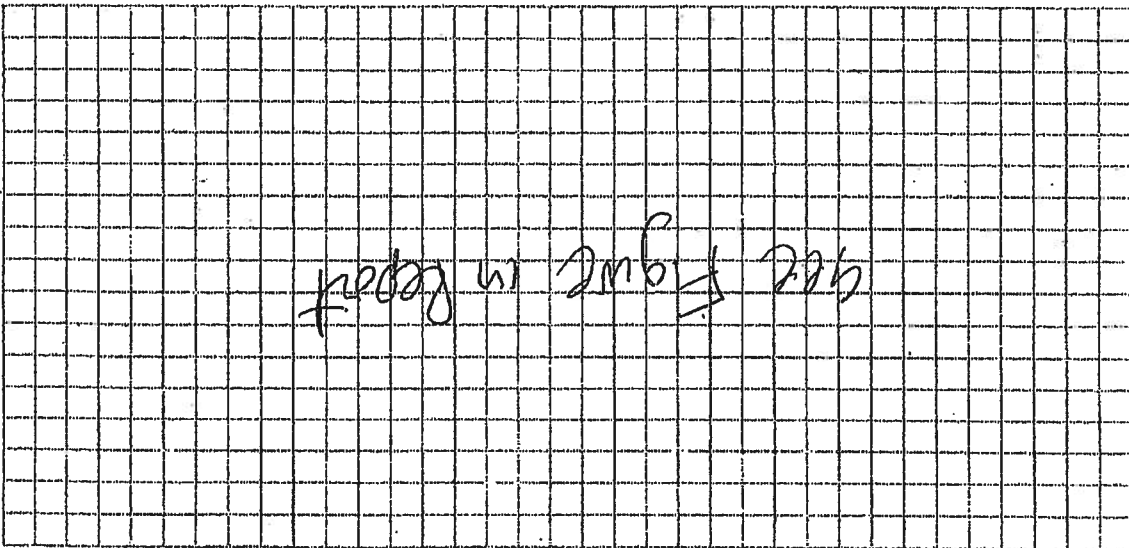 See Figure in Report